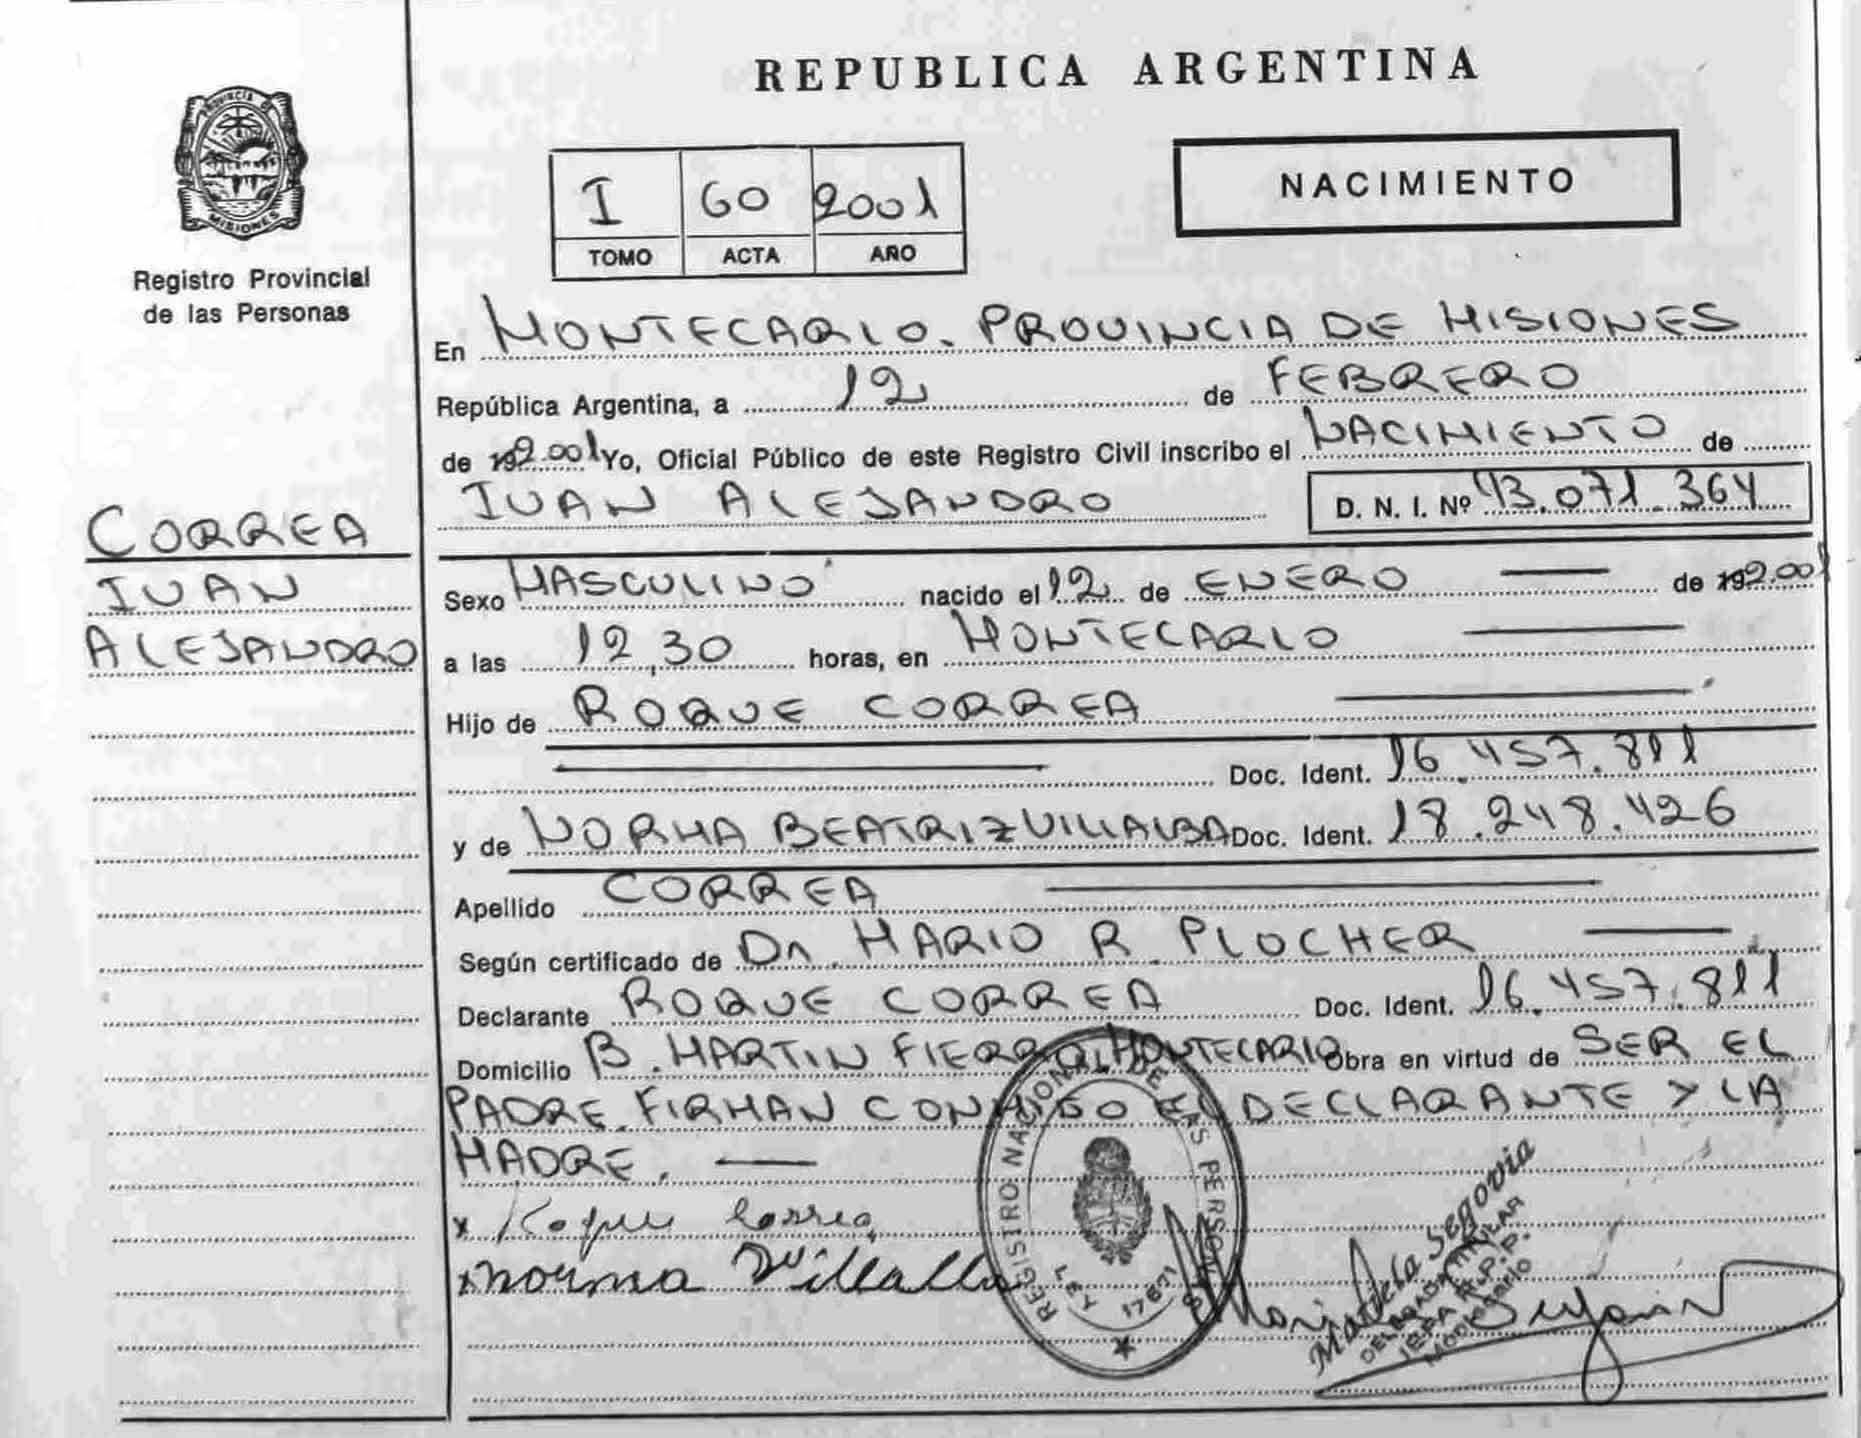 REPUBLICA ARGENTINA
PROVINCIA DE
MISIONES
Registro Provincial
de las Personas
I 60 2001
TOMO ACTA AÑO
NACIMIENTO
CORREA
IVAN
ALEJANDRO
En MONTECARLO. PROVINCIA DE MISIONES
República Argentina, a 12 de FEBRERO
de 192.001 Yo, Oficial Público de este Registro Civil inscribo el NACIMIENTO de
IVAN ALEJANDRO D. N. I. Nº 43.071.364
Sexo MASCULINO nacido el 12 de ENERO de 192.001
a las 12,30 horas, en MONTECARLO
Hijo de ROQUE CORREA
Doc. Ident. 16.457.811
y de NORMA BEATRIZ VILLALBA Doc. Ident. 18.248.426
Apellido CORREA
Según certificado de Dr. MARIO R. PLOCHER
Declarante ROQUE CORREA Doc. Ident. 16.457.811
Domicilio B. MARTIN FIERRO, MONTECARLO Obra en virtud de SER EL
PADRE. FIRMAN CONMIGO EL DECLARANTE Y LA
MADRE.
x Roque Correa
x norma Villalba
REGISTRO NACIONAL DE LAS PERSONAS
LEY 17671
Segovia
DELEGADA TITULAR
Montecarlo